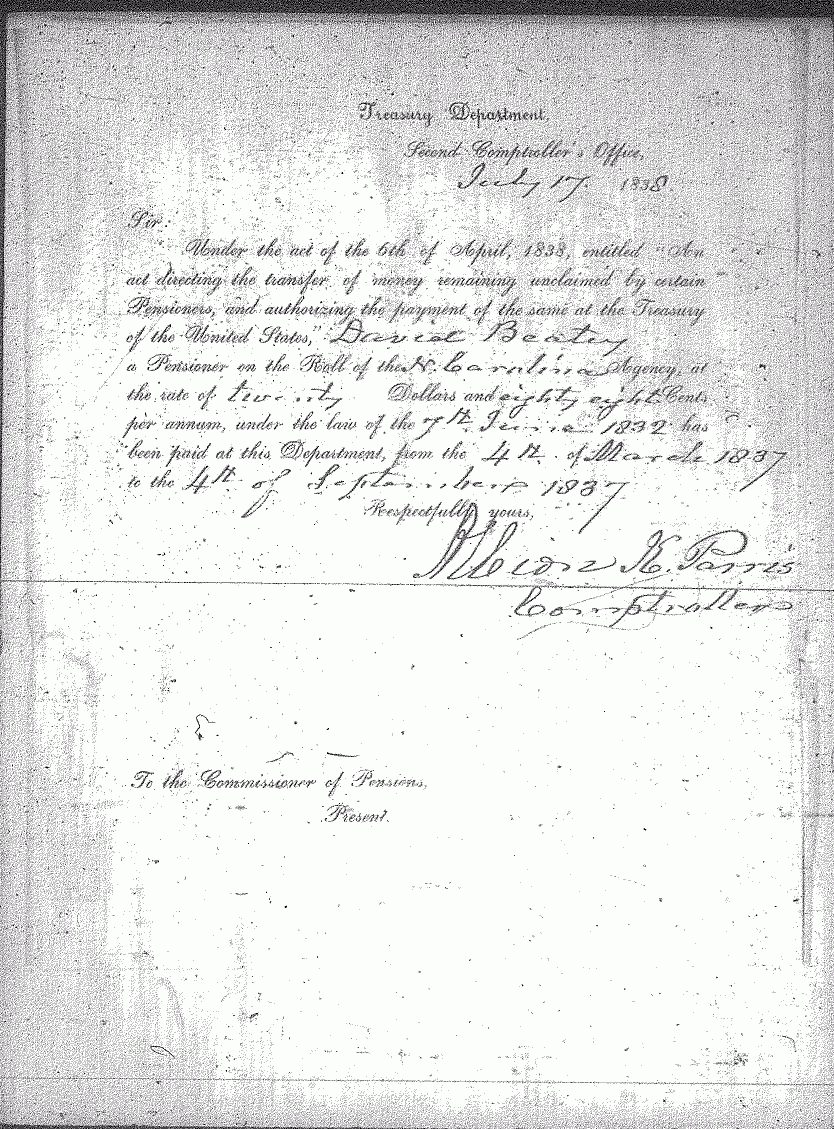 Treasury Department,
Second Comptroller's Office,
July 17. 1838
Sir:
Under the act of the 6th of April, 1838, entitled "An
act directing the transfer of money remaining unclaimed by certain
Pensioners, and authorizing the payment of the same at the Treasury
of the United States," David Beatey
a Pensioner on the Roll of the N. Carolina Agency, at
the rate of twenty Dollars and eighty eight Cents
per annum, under the law of the 7th June 1832 has
been paid at this Department, from the 4th of March 1837
to the 4th of September 1837
Respectfully yours,
Albion K. Parris
Comptroller
To the Commissioner of Pensions,
Present.